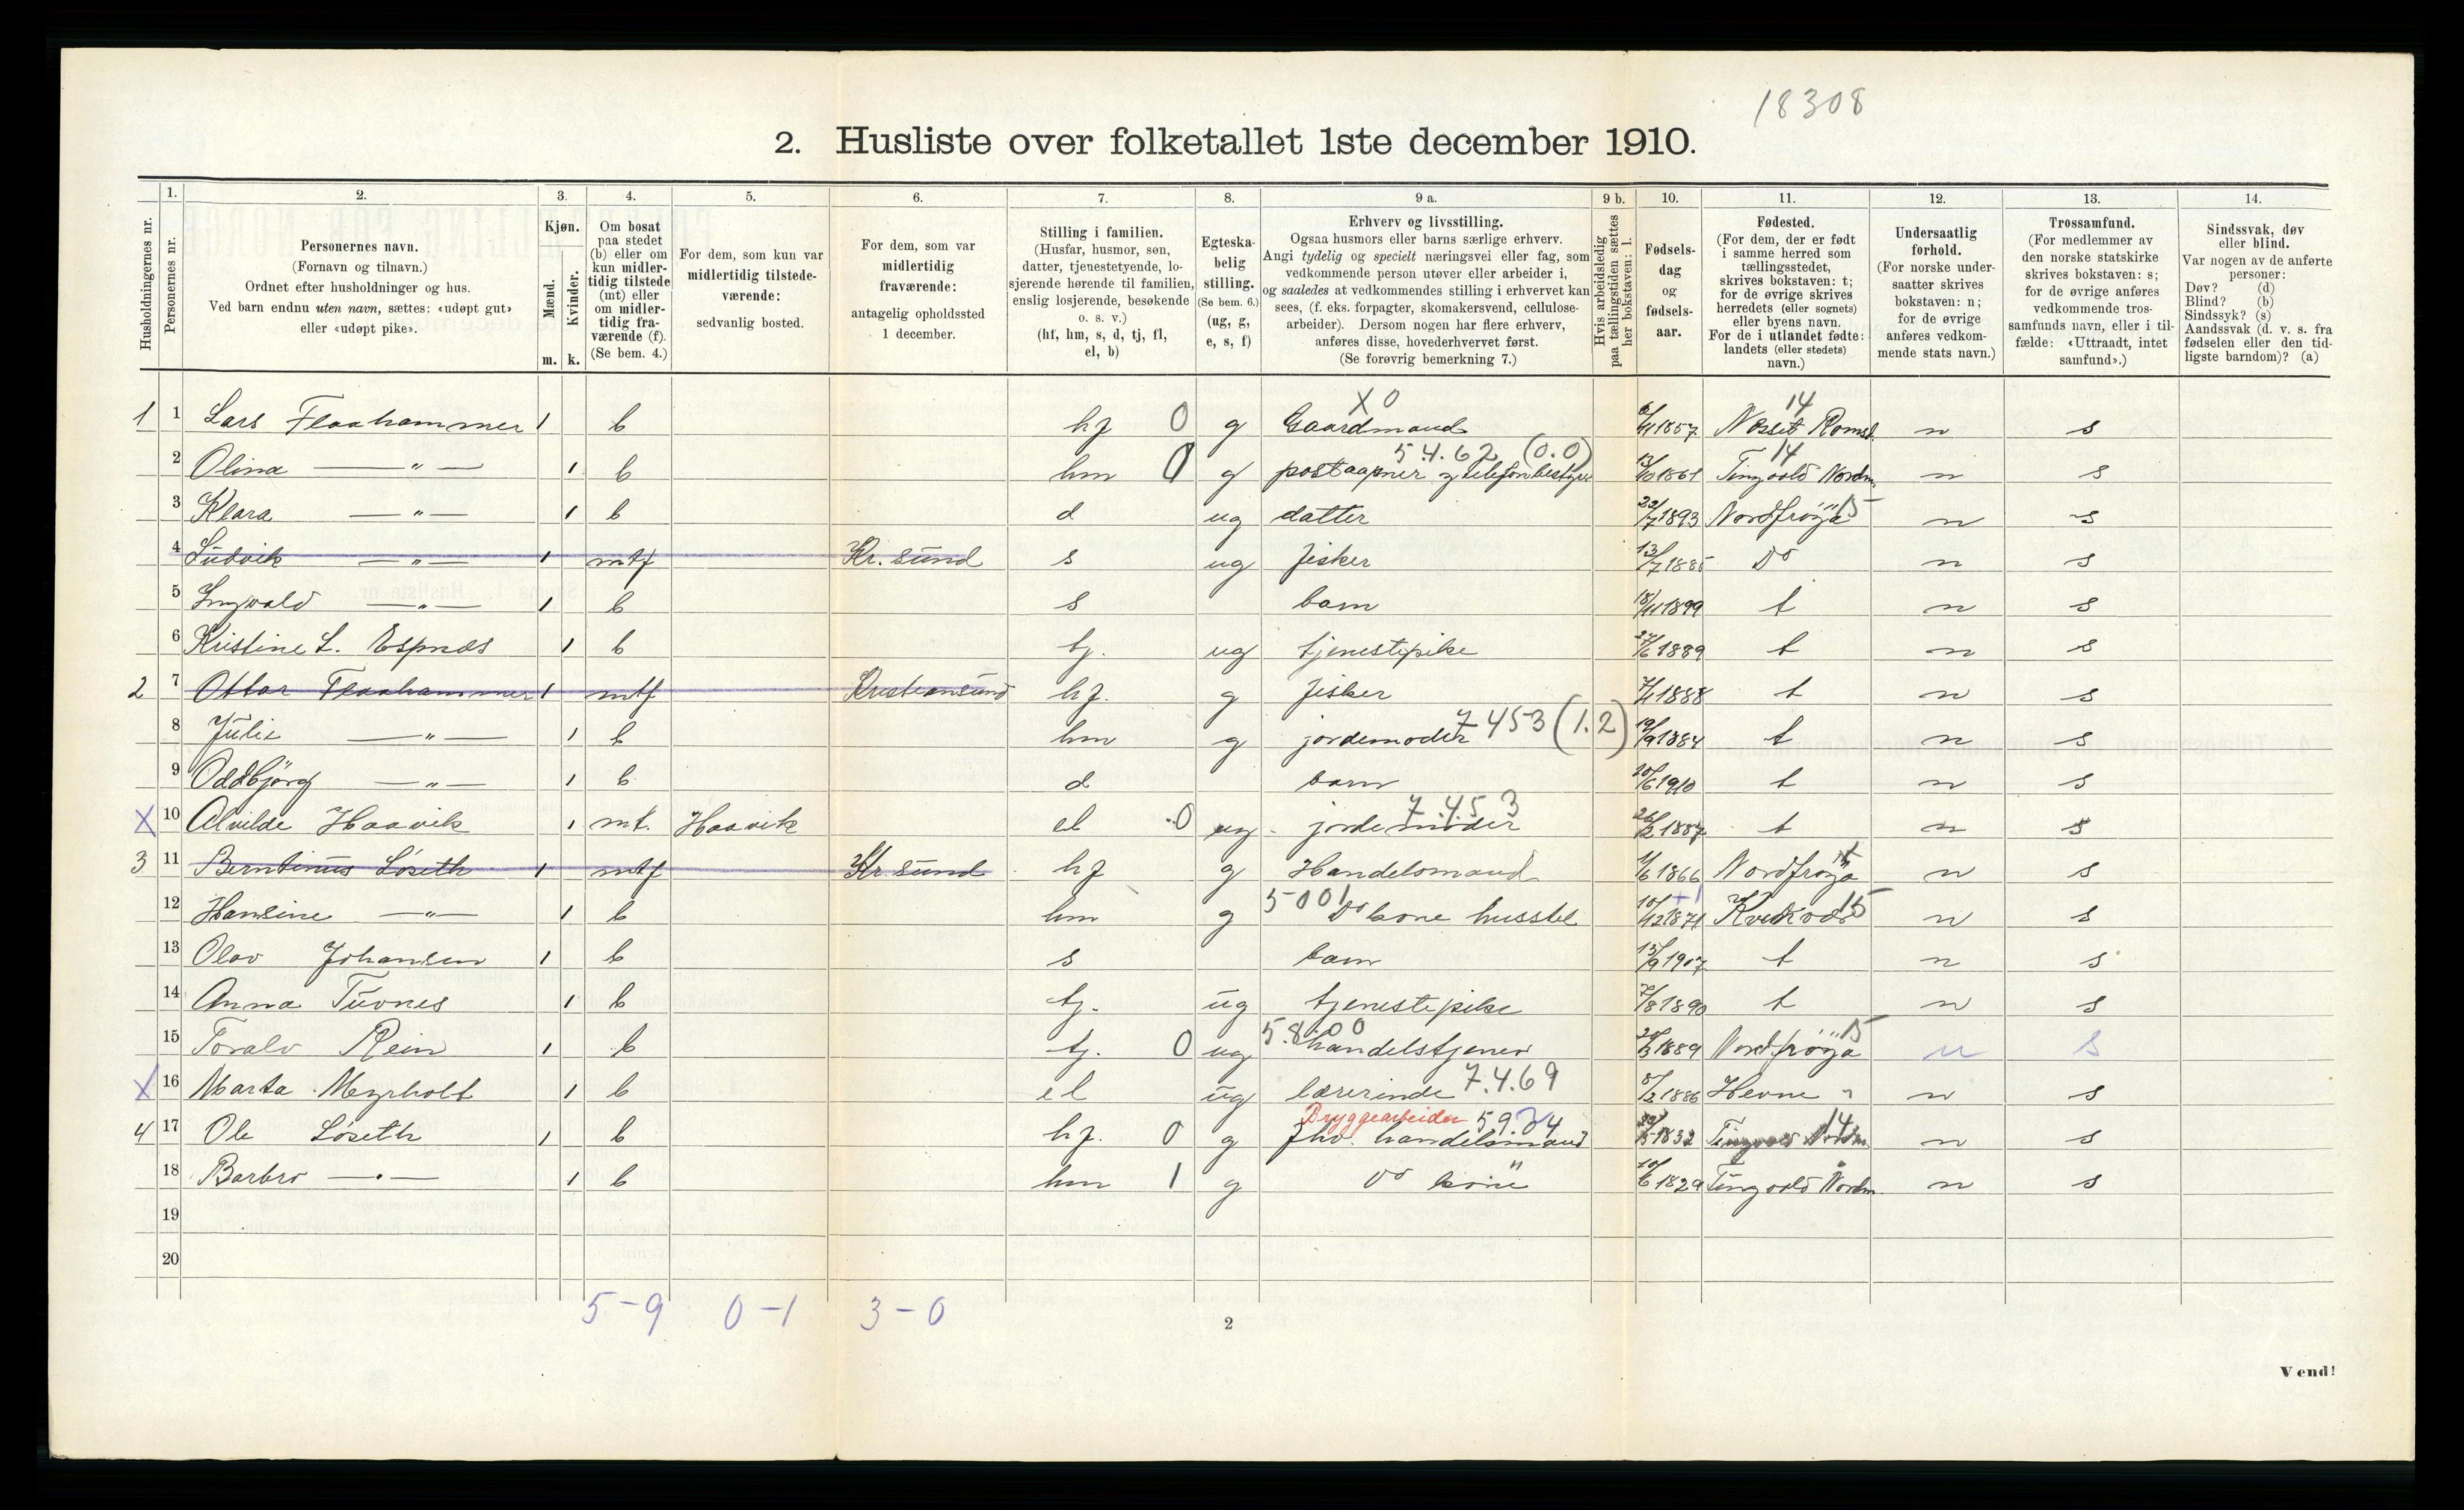 18308
2. Husliste over folketallet 1ste december 1910.
Husholdningernes nr.
1. Personernes nr.
2. Personernes navn. (Fornavn og tilnavn.) Ordnet efter husholdninger og hus. Ved barn endnu uten navn, sættes: «udøpt gut» eller «udøpt pike».
3. Kjøn. Mænd. m. Kvinder. k.
4. Om bosat paa stedet (b) eller om kun midlertidig tilstede (mt) eller om midlertidig fraværende (f). (Se bem. 4.)
5. For dem, som kun var midlertidig tilstedeværende: sedvanlig bosted.
6. For dem, som var midlertidig fraværende: antagelig opholdssted 1 december.
7. Stilling i familien. (Husfar, husmor, søn, datter, tjenestetyende, losjerende hørende til familien, enslig losjerende, besøkende o. s. v.) (hf, hm, s, d, tj, fl, el, b)
8. Egteskabelig stilling. (Se bem. 6.) (ug, g, e, s, f)
9 a. Erhverv og livsstilling. Ogsaa husmors eller barns særlige erhverv. Angi tydelig og specielt næringsvei eller fag, som vedkommende person utøver eller arbeider i, og saaledes at vedkommendes stilling i erhvervet kan sees, (f. eks. forpagter, skomakersvend, cellulosearbeider). Dersom nogen har flere erhverv, anføres disse, hovederhvervet først. (Se forøvrig bemerkning 7.)
9 b. Hvis arbeidsledig paa tællingstiden sættes her bokstaven: l.
10. Fødselsdag og fødselsaar.
11. Fødested. (For dem, der er født i samme herred som tællingsstedet, skrives bokstaven: t; for de øvrige skrives herredets (eller sognets) eller byens navn. For de i utlandet fødte: landets (eller stedets) navn.)
12. Undersaatlig forhold. (For norske undersaatter skrives bokstaven: n; for de øvrige anføres vedkommende stats navn.)
13. Trossamfund. (For medlemmer av den norske statskirke skrives bokstaven: s; for de øvrige anføres vedkommende trossamfunds navn, eller i tilfælde: «Uttraadt, intet samfund».)
14. Sindssvak, døv eller blind. Var nogen av de anførte personer: Døv? (d) Blind? (b) Sindssyk? (s) Aandssvak (d. v. s. fra fødselen eller den tidligste barndom)? (a)
1 1 Lars Flaahammer 1 b hf 0 g X0 Gaardmand 1857 14 Nesset Romsd. n s
2 Olina —"— 1 b hm 0 g 5.4.62 (0.0) postaapner og telefonbestyer 1861 14 Tingvold Nordm. n s
3 Klara —"— 1 b d ug datter 23/7 1893 Nordfröya 15 n s
4 Ludvik —"— 1 mtf Kr. sund s ug fisker 13/7 1885 Do n s
5 Ingvald —"— 1 b s barn 18/11 1899 t n s
6 Kristine L. Espnes 1 b tj. ug tjenestepike 1889 t n s
2 7 Ottar Flaahammer 1 mtf Kristiansund hf. g fisker 1888 t n s
8 Julie —"— 1 b hm g jordemoder 7453 (1.2) 19/9 1884 t n s
9 Oddbjörg —"— 1 b d barn 1910 t n s
X 10 Alvilde Haavik 1 mt. Haavik el 0 ug 7.4.5 3 jordemoder 26/2 1887 t n s
3 11 Berntinus Løseth 1 mtf Kr. sund hf g Handelsmand 1/6 1866 Nordfröya n s
12 Hansine —"— 1 b hm g 5001 Do kone husstel 10/12 1871 15 n s
13 Olav Johansen 1 b s barn 15/9 1907 t n s
14 Anna Tuvnes 1 b tj. ug tjenestepike 7/8 1890 t n s
15 Toralv Rein 1 b tj. 0 ug 5.8.00 handelstjener 1889 Nordfröya 15 n s
X 16 Marta Meyrholt 1 b el ug lærerinde 7.4.69 8/2 1886 Hevne n s
4 17 Ole Løseth 1 b hf. 0 g Bryggearbeider 59.24 fhv. handelsmand 1832 14 Tingvold Nordm. n s
18 Barbro — " — 1 b hm 1 g Do kone 10/6 1829 Tingvold Nordm. n s
19
20
5-9 0-1 3-0
2
Vend!